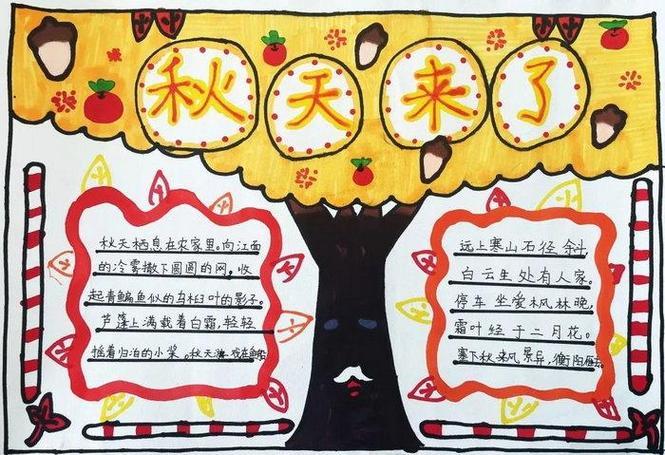 秋天来了
秋天栖息在农家里。向江面
的冷雾撒下圆圆的网，收
起青鳊鱼似的乌桕叶的影子。
芦篷上满载着白霜，轻轻
摇着归泊的小桨。秋天游戏在
远上寒山石径斜
白云生处有人家。
停车坐爱枫林晚，
霜叶经于二月花。
塞下秋来风景异，衡阳雁去